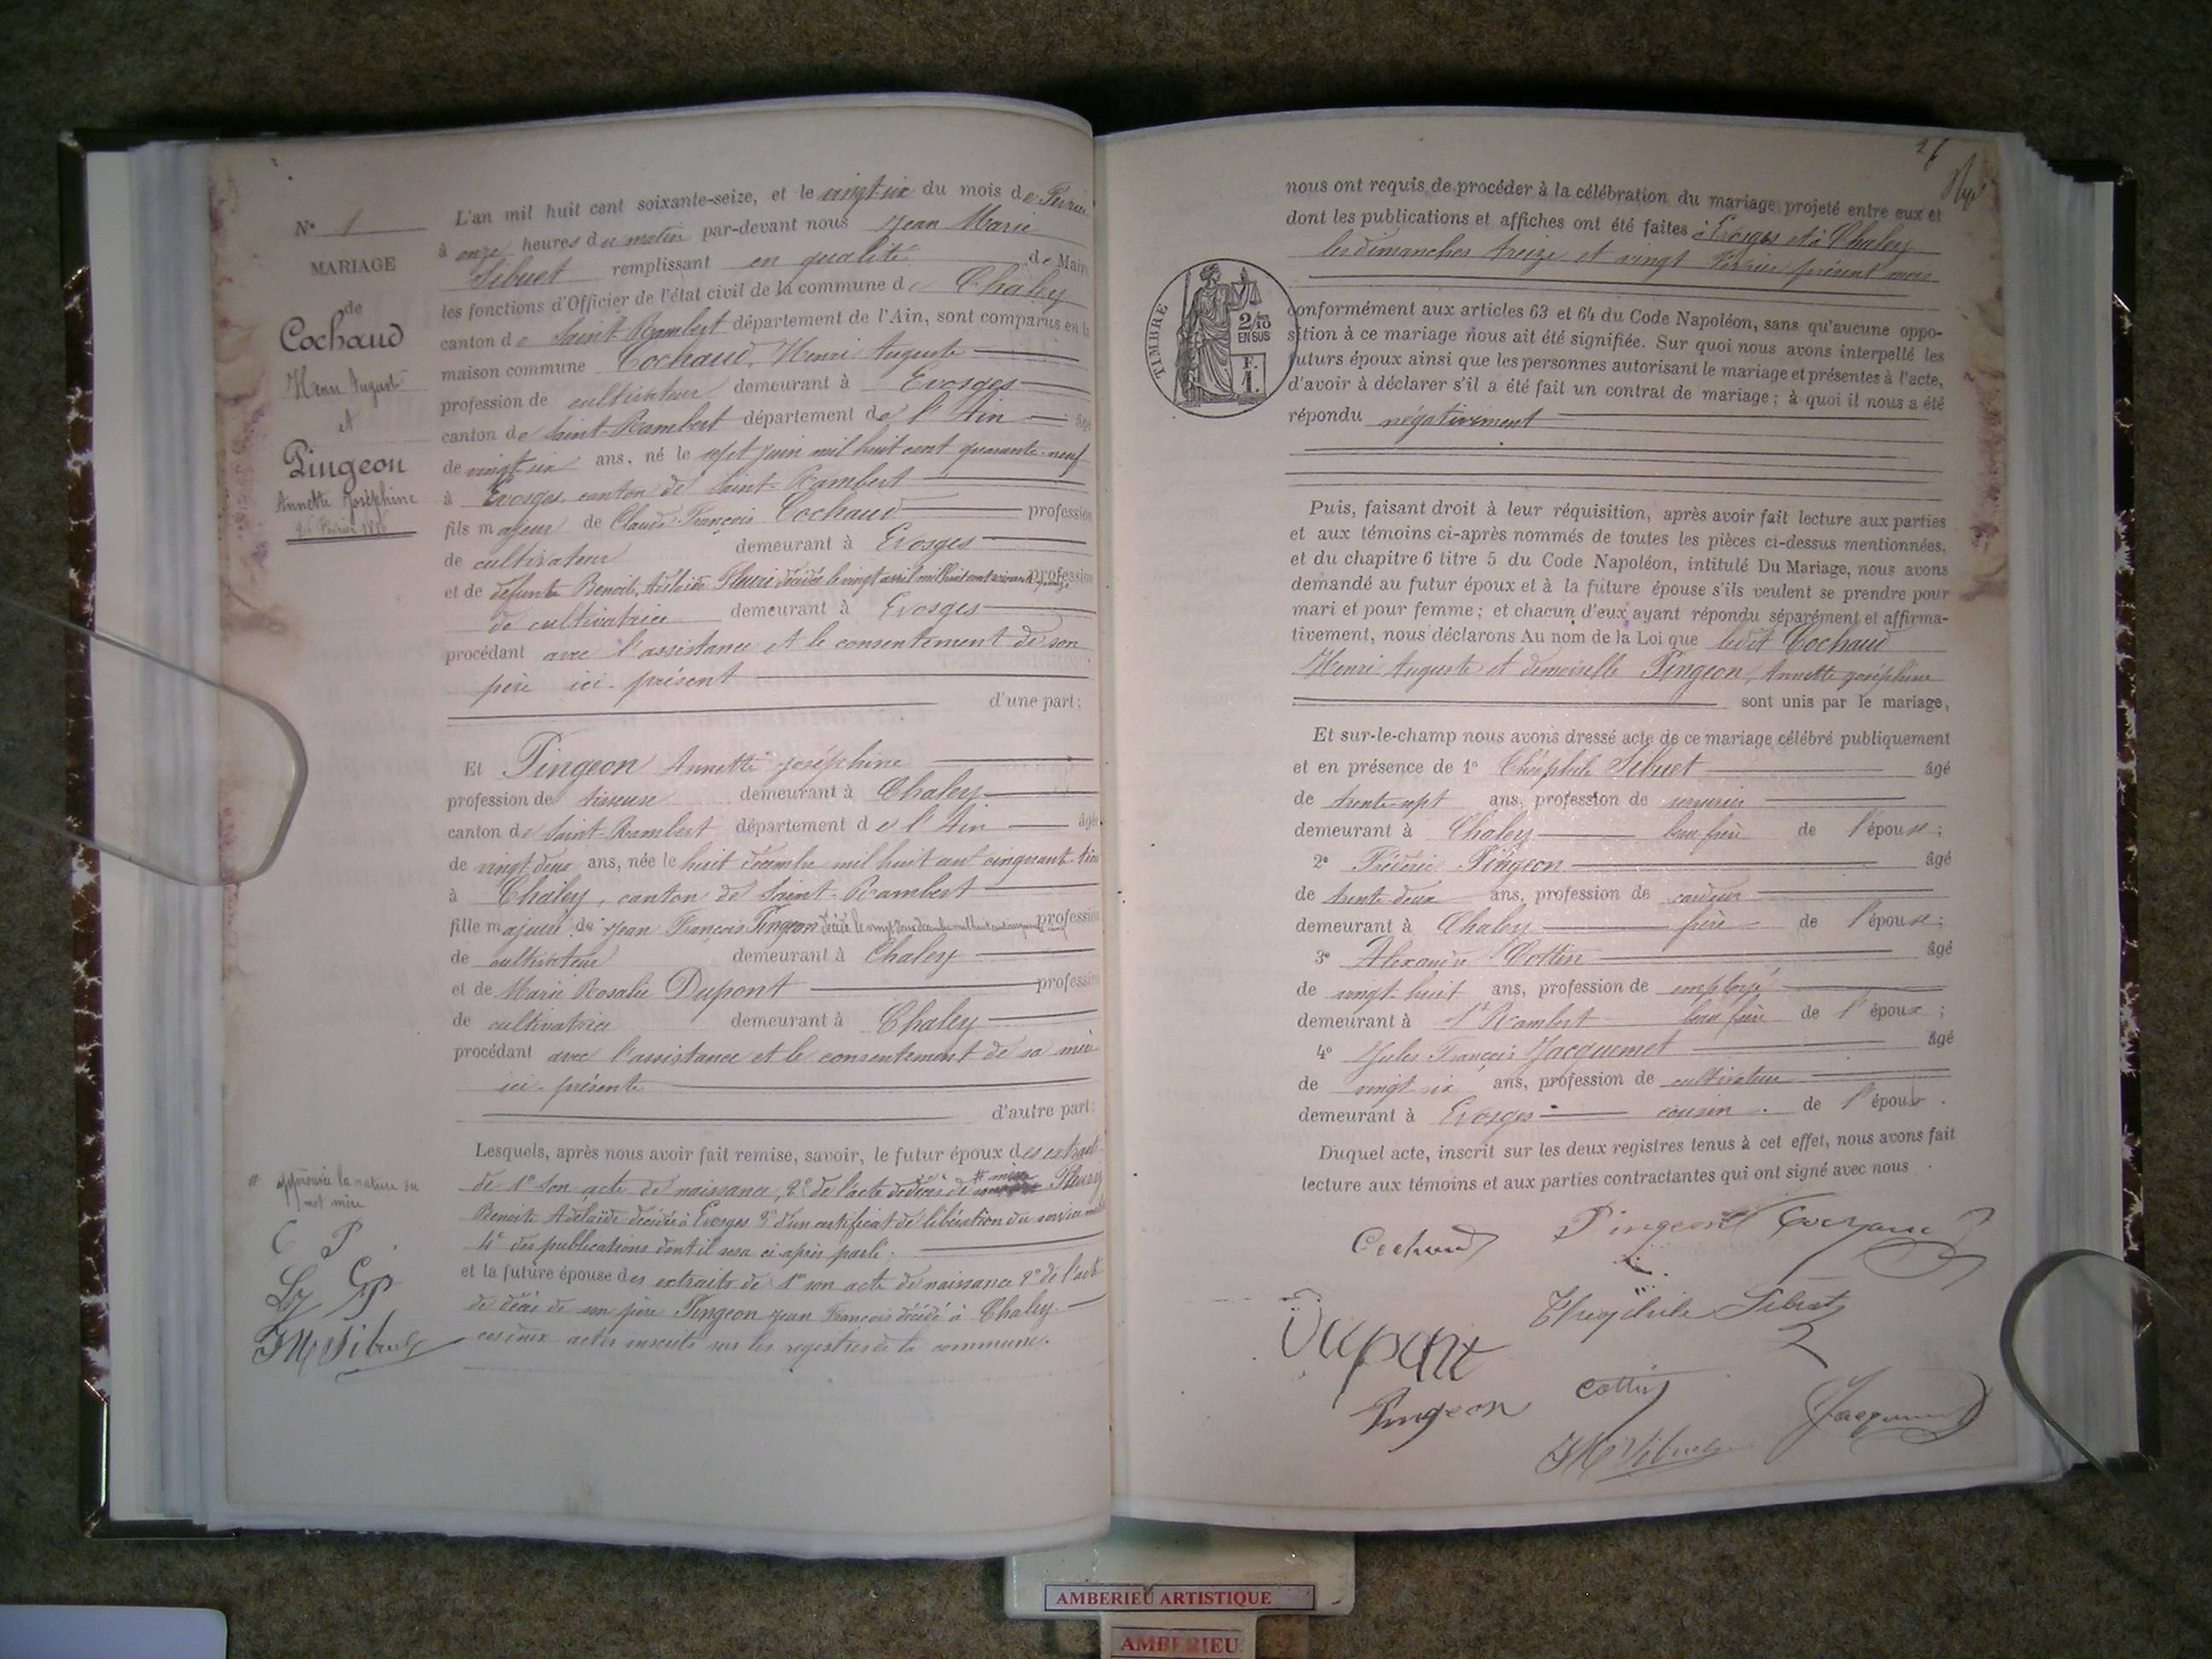 N° 1
MARIAGE
de
Cochaud
Henri Auguste
et
Pingeon
Annette Joséphine
Février 1876
L'an mil huit cent soixante-seize, et le vingt-six du mois de Février
à onze heures du matin par-devant nous Jean Marie
Sibuet remplissant en qualité de Maire
les fonctions d'Officier de l'état civil de la commune de Chaley
canton de Saint-Rambert département de l'Ain, sont comparus en la
maison commune Cochaud, Henri Auguste
profession de cultivateur demeurant à Evosges
canton de Saint-Rambert département de l'Ain âgé
de vingt six ans, né le sept juin mil huit cent quarante-neuf
à Evosges canton de Saint-Rambert
fils majeur de Claude-François Cochaud profession
de cultivateur demeurant à Evosges
et de défunte Benoite Adélaïde Fleuri décédée le vingt avril mil huit cent profession
de cultivatrice demeurant à Evosges
procédant avec l'assistance et le consentement de son
père ici-présent
d'une part;
Et Pingeon Annette Joséphine
profession de tisseuse demeurant à Chaley
canton de Saint-Rambert département de l'Ain âgée
de vingt-deux ans, née le huit décembre mil huit cent cinquante-trois
à Chaley, canton de Saint-Rambert
fille majeure de Jean François Pingeon décédé le vingt deux décembre mil huit cent profession
de cultivateur demeurant à Chaley
et de Marie Rosalie Dupont profession
de cultivatrice demeurant à Chaley
procédant avec l'assistance et le consentement de sa mère
ici-présente
d'autre part;
Lesquels, après nous avoir fait remise, savoir, le futur époux des extraits
de 1° son acte de naissance, 2° de l'acte de décès de # mère Fleury
Benoite Adelaïde décédée à Evosges 3° d'un certificat de libération du service
4° des publications dont il sera ci-après parlé.
et la future épouse des extraits de 1° son acte de naissance 2° de l'acte
de décès de son père Pingeon Jean François décédé à Chaley.
ces deux actes inscrits sur les registres de la commune.
# approuvée la rature du
mot mère
C P
CP
JM Sibuet
26
nous ont requis de procéder à la célébration du mariage projeté entre eux et
dont les publications et affiches ont été faites à Evosges et à Chaley
les dimanches treize et vingt Février présent mois
TIMBRE
2/10
EN SUS
F.
1.
conformément aux articles 63 et 64 du Code Napoléon, sans qu'aucune oppo-
sition à ce mariage nous ait été signifiée. Sur quoi nous avons interpellé les
futurs époux ainsi que les personnes autorisant le mariage et présentes à l'acte,
d'avoir à déclarer s'il a été fait un contrat de mariage; à quoi il nous a été
répondu négativement
Puis, faisant droit à leur réquisition, après avoir fait lecture aux parties
et aux témoins ci-après nommés de toutes les pièces ci-dessus mentionnées,
et du chapitre 6 titre 5 du Code Napoléon, intitulé Du Mariage, nous avons
demandé au futur époux et à la future épouse s'ils veulent se prendre pour
mari et pour femme; et chacun d'eux ayant répondu séparément et affirma-
tivement, nous déclarons Au nom de la Loi que ledit Cochaud
Henri Auguste et demoiselle Pingeon, Annette Joséphine
sont unis par le mariage,
Et sur-le-champ nous avons dressé acte de ce mariage célébré publiquement
et en présence de 1° Théophile Sibuet âgé
de trente-sept ans, profession de
demeurant à Chaley beau frère de l'épouse;
2° Fréderic Pingeon âgé
de trente-deux ans, profession de cardeur
demeurant à Chaley frère de l'épouse;
3° Alexandre Cottin âgé
de vingt-huit ans, profession de employé
demeurant à St Rambert beau frère de l'époux;
4° Jules François Jacquemet âgé
de vingt six ans, profession de cultivateur
demeurant à Evosges cousin de l'époux.
Duquel acte, inscrit sur les deux registres tenus à cet effet, nous avons fait
lecture aux témoins et aux parties contractantes qui ont signé avec nous.
Cochaud
Pingeon
Theophile Sibuet
Dupont
Pingeon
Cottin
Jacquemet
JM Sibuet
AMBERIEU ARTISTIQUE
AMBERIEU